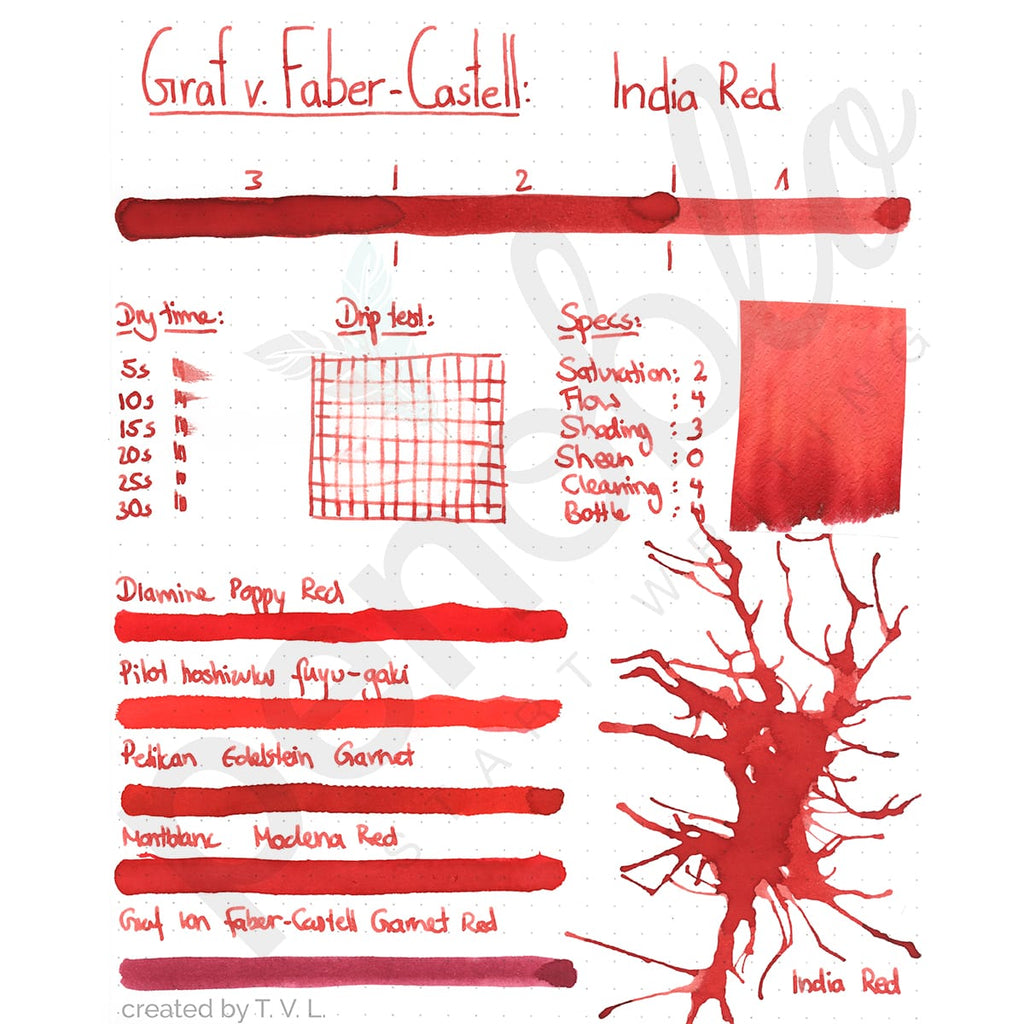 Graf v. Faber-Castell: India Red
3 | 2 | 1
Dry time:
5s
10s
15s
20s
25s
30s
Drip test:
Specs:
Saturation: 2
Flow : 4
Shading : 3
Sheen : 0
Cleaning : 4
Bottle : 4
Diamine Poppy Red
Pilot hoshizuku fuyu-gaki
Pelikan Edelstein Garnet
Montblanc Modena Red
Graf von Faber-Castell Garnet Red
India Red
created by T. V. L.
penoblo
START WRITING